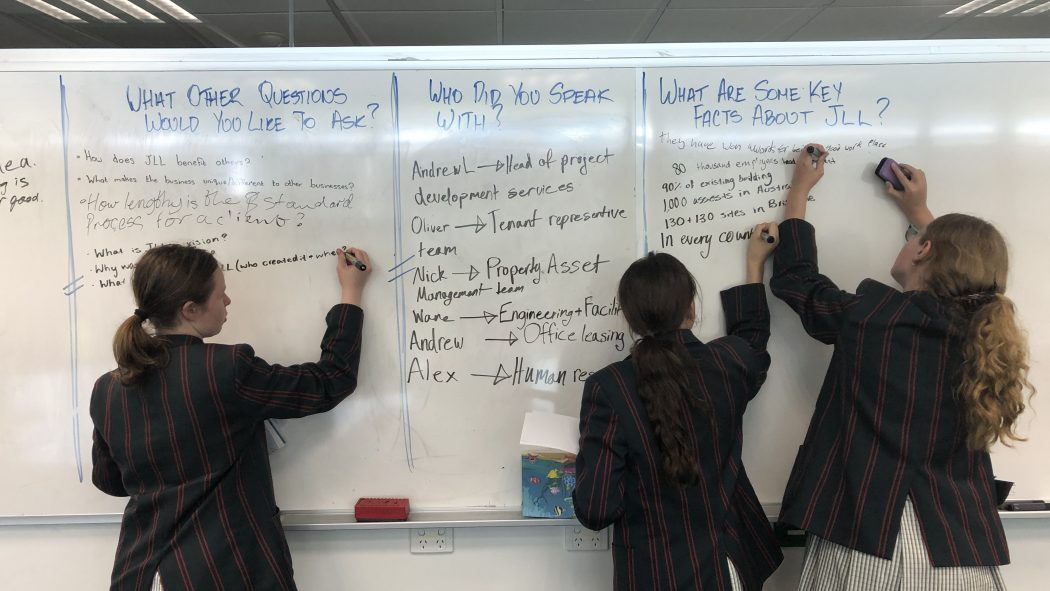 ea.
g is
r good.
WHAT OTHER QUESTIONS
WOULD YOU LIKE TO ASK?
• How does JLL benefit others?
• What makes the business unique/different to other businesses?
• How lengthy is the 8 Standard
Process for a client?
• What is vision?
• Why was LL (who created it + when?
• What
WHO DID YOU SPEAK
WITH?
Andrew L → Head of project
development services
Oliver → Tenant representive
team
Nick → Property Asset
Management team
Wane → Engineering + Facili
Andrew → Office leasing
Alex → Human res
WHAT ARE SOME KEY
FACTS ABOUT JLL?
they have won awards for good work place
80 thousand employees
90% of existing building
1,000 assests in Austra
130 + 130 sites in Br e
In every count